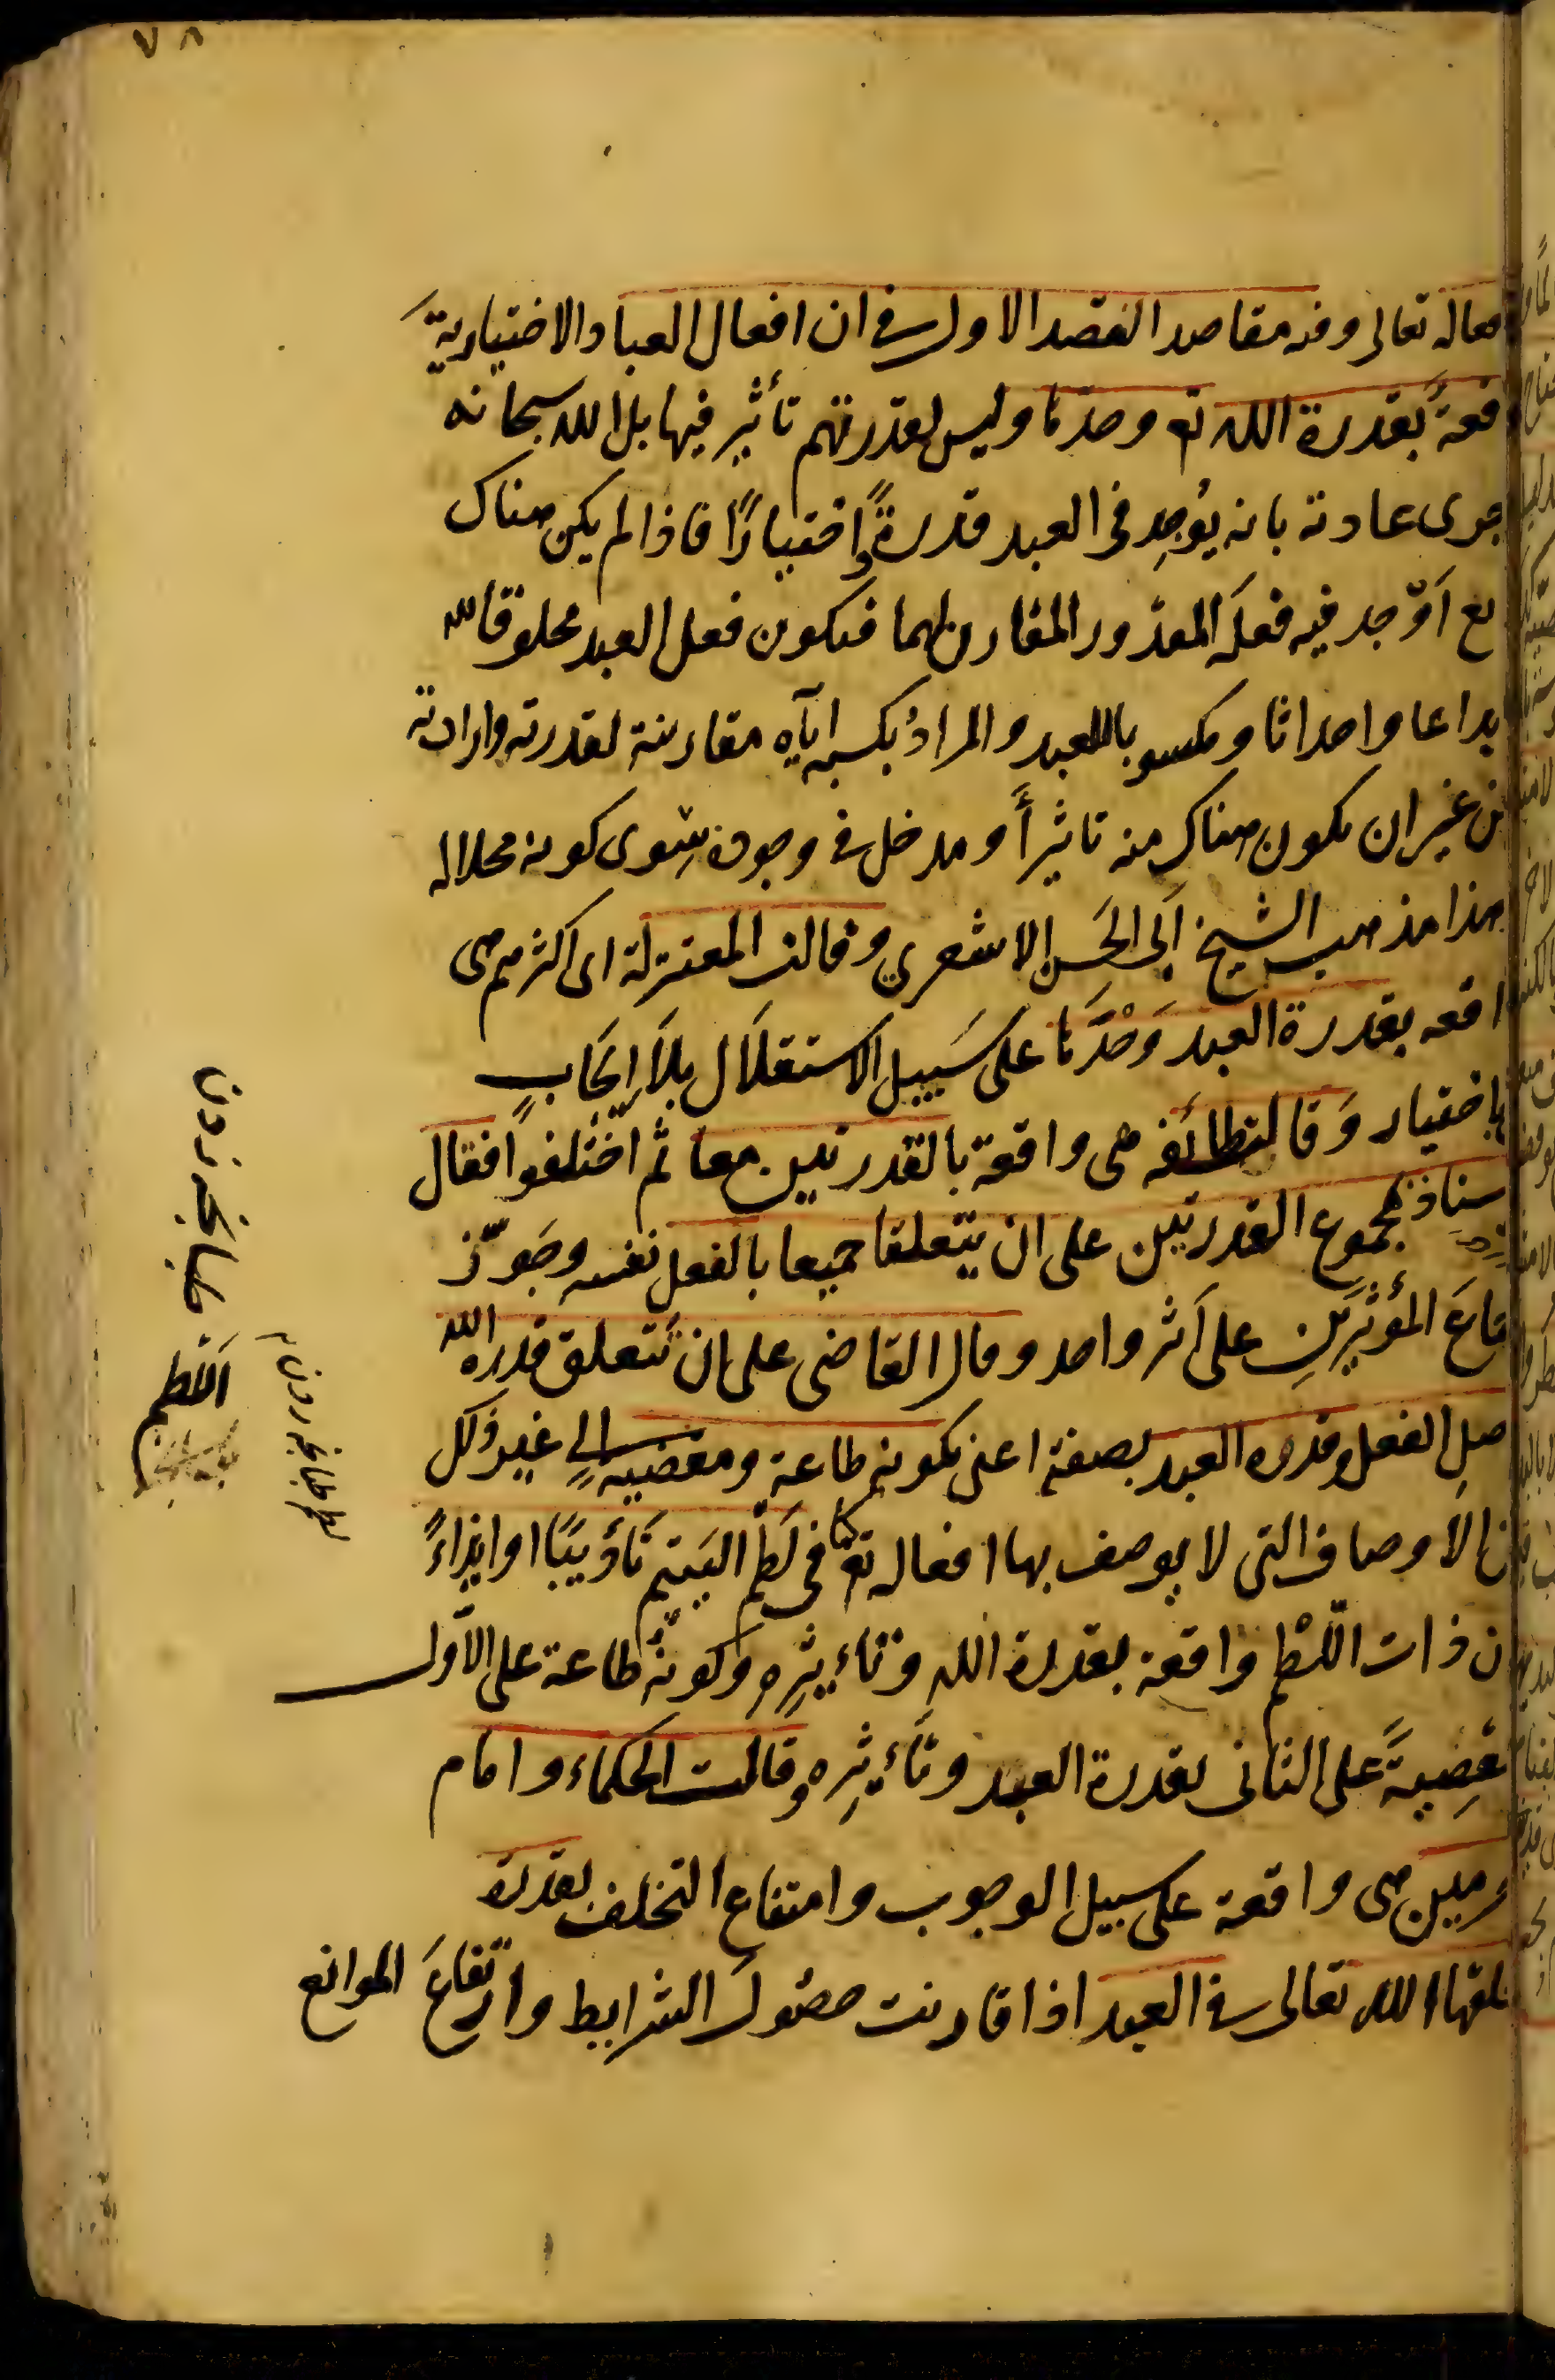 ٧٨
افعاله تعالى وفيه مقاصد المقصد الاول في ان افعال العباد الاختيارية
واقعةٌ بقدرة الله تع وحدها وليس لقدرتهم تأثير فيها بل الله سبحانه
اجرى عادته بانه يُوجِد فى العبد قدرةً واختيارًا فاذا لم يكن هناك
مانع اَوْجد فيه فعلَه المقدور المقارن لهما فيكون فعل العبد مخلوقا لله
ابداعا واحداثا ومكسوبا للعبد والمرادُ بكسبه ايّاه مقارنته لقدرته وارادته
من غير ان يكون هناك منه تاثيرٌ او مدخل في وجوده سِوى كونه محلا له
هذا مذهب الشيخ اَبى الحَسن الاشعري وقالت المعتزلة اى اكثرهم هى
واقعه بقدرة العبد وَحْدَها على سَبيل الاستقلَال بلَا اِيجَابٍ
باختيار وَقالت طائفه هى واقعة بالقدرتين معا ثم اختلفوا فقال
الاستاذ بمجموع القدرتين على ان يتعلقا جميعا بالفعل نفسه وجَوّز
اجتماعَ المؤثرَينِ على اَثر واحد وقال القاضى على ان تتعلق قدرة الله
باصل الفعل وقدرة العبد بصفته اعنى بكونه طاعة ومعصية الى غير ذلك
من الاَوصاف التى لا يوصف بها افعاله تع كما فى لَطْم اليَتيم تأديبًا او ايذاءً
فان ذات اللّطْم واقعة بقدرة الله وتأثيرِهِ وكونهُ طاعة على الاَول
ومَعْصِيةً على الثانى بقدرة العبد وتأثيرِه وقالت الحكماء وامام
الحرمين هى واقعة على سبيل الوجوب وامتناع التخلف بقدرة
يخلقها الله تعالى في العبد اذا قارنت حصُولَ الشرايط وارتفاعَ الموانع
اللطم طبانجه زدن
لطم طبانجه زدن